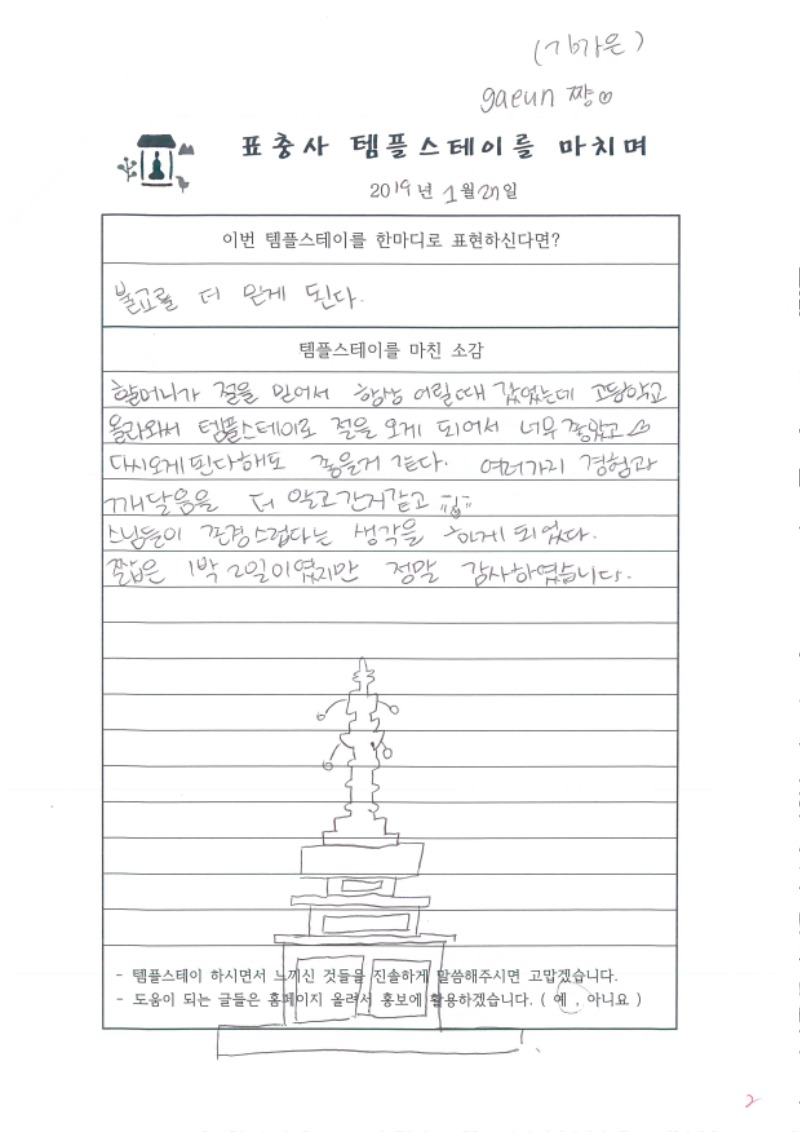 (김가은)
gaeun 짱♡
표충사 템플스테이를 마치며
2019년 1월 27일
이번 템플스테이를 한마디로 표현하신다면?
불교를 더 믿게 된다.
템플스테이를 마친 소감
할머니가 절을 믿어서 항상 어릴때 갔었는데 고등학교
올라와서 템플스테이로 절을 오게 되어서 너무 좋았고♡
다시오게된다해도 좋을거 같다. 여러가지 경험과
깨달음을 더 알고간거같고
스님들이 존경스럽다는 생각을 하게 되었다.
짧은 1박 2일이였지만 정말 감사하였습니다.
- 템플스테이 하시면서 느끼신 것들을 진솔하게 말씀해주시면 고맙겠습니다.
- 도움이 되는 글들은 홈페이지 올려서 홍보에 활용하겠습니다. ( 예 , 아니요 )
2